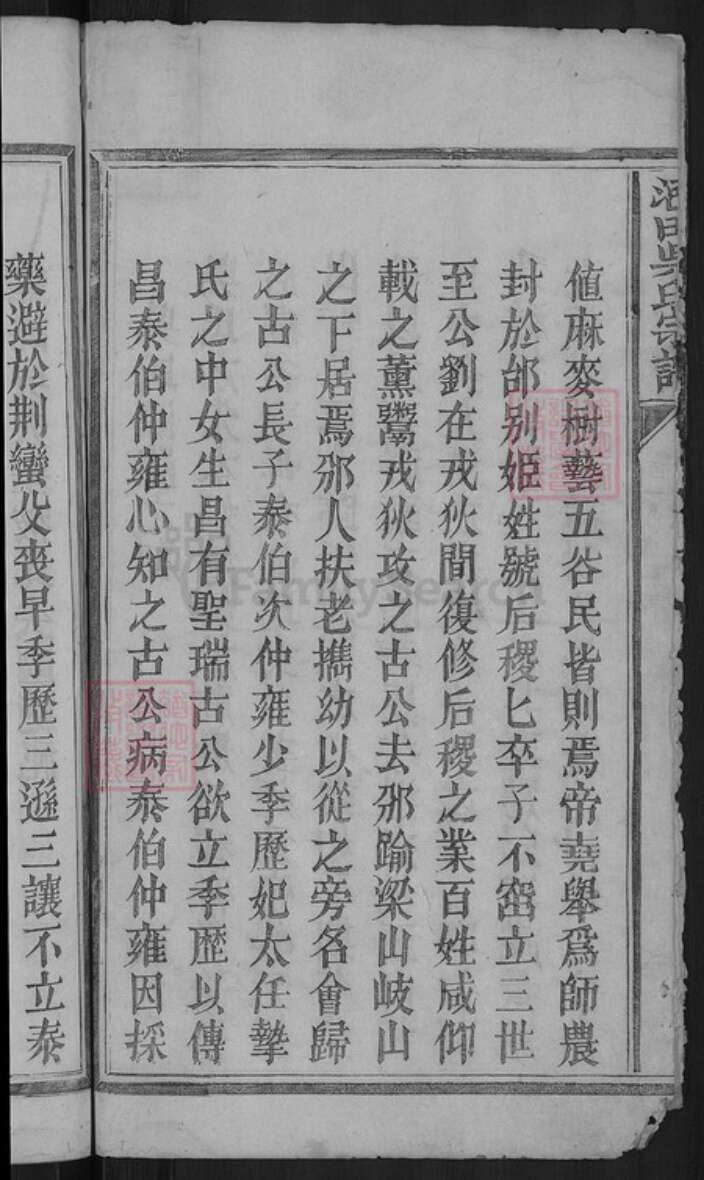 吳氏宗譜
値麻麥樹藝五谷民皆則焉帝堯舉爲師農
封於邰别姬姓號后稷匕卒子不窋立三世
至公劉在戎狄間復修后稷之業百姓咸仰
載之薰鬻戎狄攻之古公去邠踰梁山岐山
之下居焉邠人扶老擕幼以從之旁名會歸
之古公長子泰伯次仲雍少季歷妃太任摯
氏之中女生昌有聖瑞古公欲立季歴以傳
昌泰伯仲雍心知之古公病泰伯仲雍因採
藥避於荆蠻父喪早季歷三遜三讓不立泰
FamilySearch